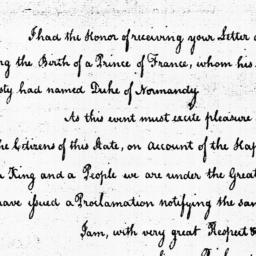 I had the Honor of receiving your Letter
ng the Birth of a Prince of France, whom his
sty had named Duke of Normandy
As this event must excite pleasure
he Citizens of this State, on Account of the Hap
King and a People we are under the Great
ave issued a Proclamation notifying the sam
I am, with very great Respect &